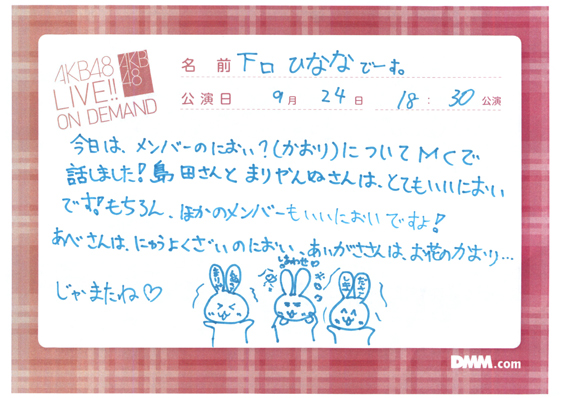 AKB48
LIVE!!
ON DEMAND
AKB
48
名 前 下口 ひななでーす。
公演日 9月 24日 18:30公演
今日は、メンバーのにおい?(かおり)についてMCで
話しました!島田さんと まりやんぬさんは、とてもいいにおい
です!もちろん、ほかのメンバーもいいにおいですよ!
あべさんは、にゅうよくざいのにおい、あいがささんは、お花のかおり…
しあわせ
じゃまたね♡
DMM.com